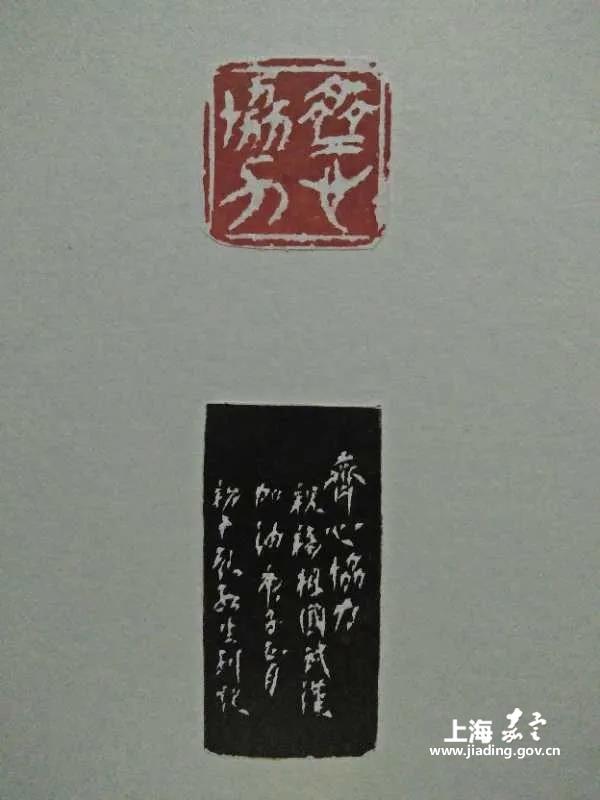 齊心
協力
齊心協力
祝福祖國武漢
加油庚子正月
上海嘉定
www.jiading.gov.cn